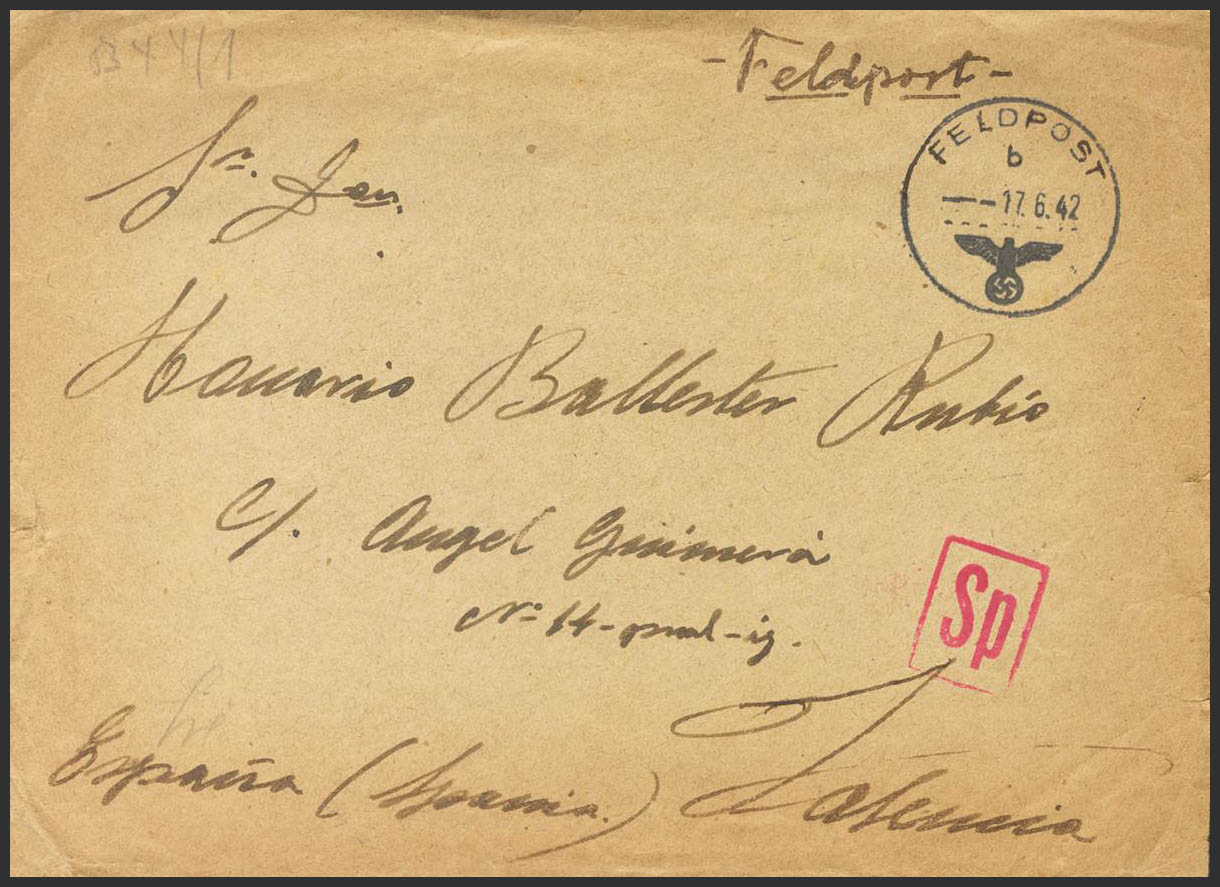 B 44/1
- Feldport -
FELDPOST
b
-- 17.6.42
Sr. Don.
Honorio Ballester Rubio
C/. Angel Guimerá
Nº 14-pral-iz.
Sp
España (Spania.) Valencia